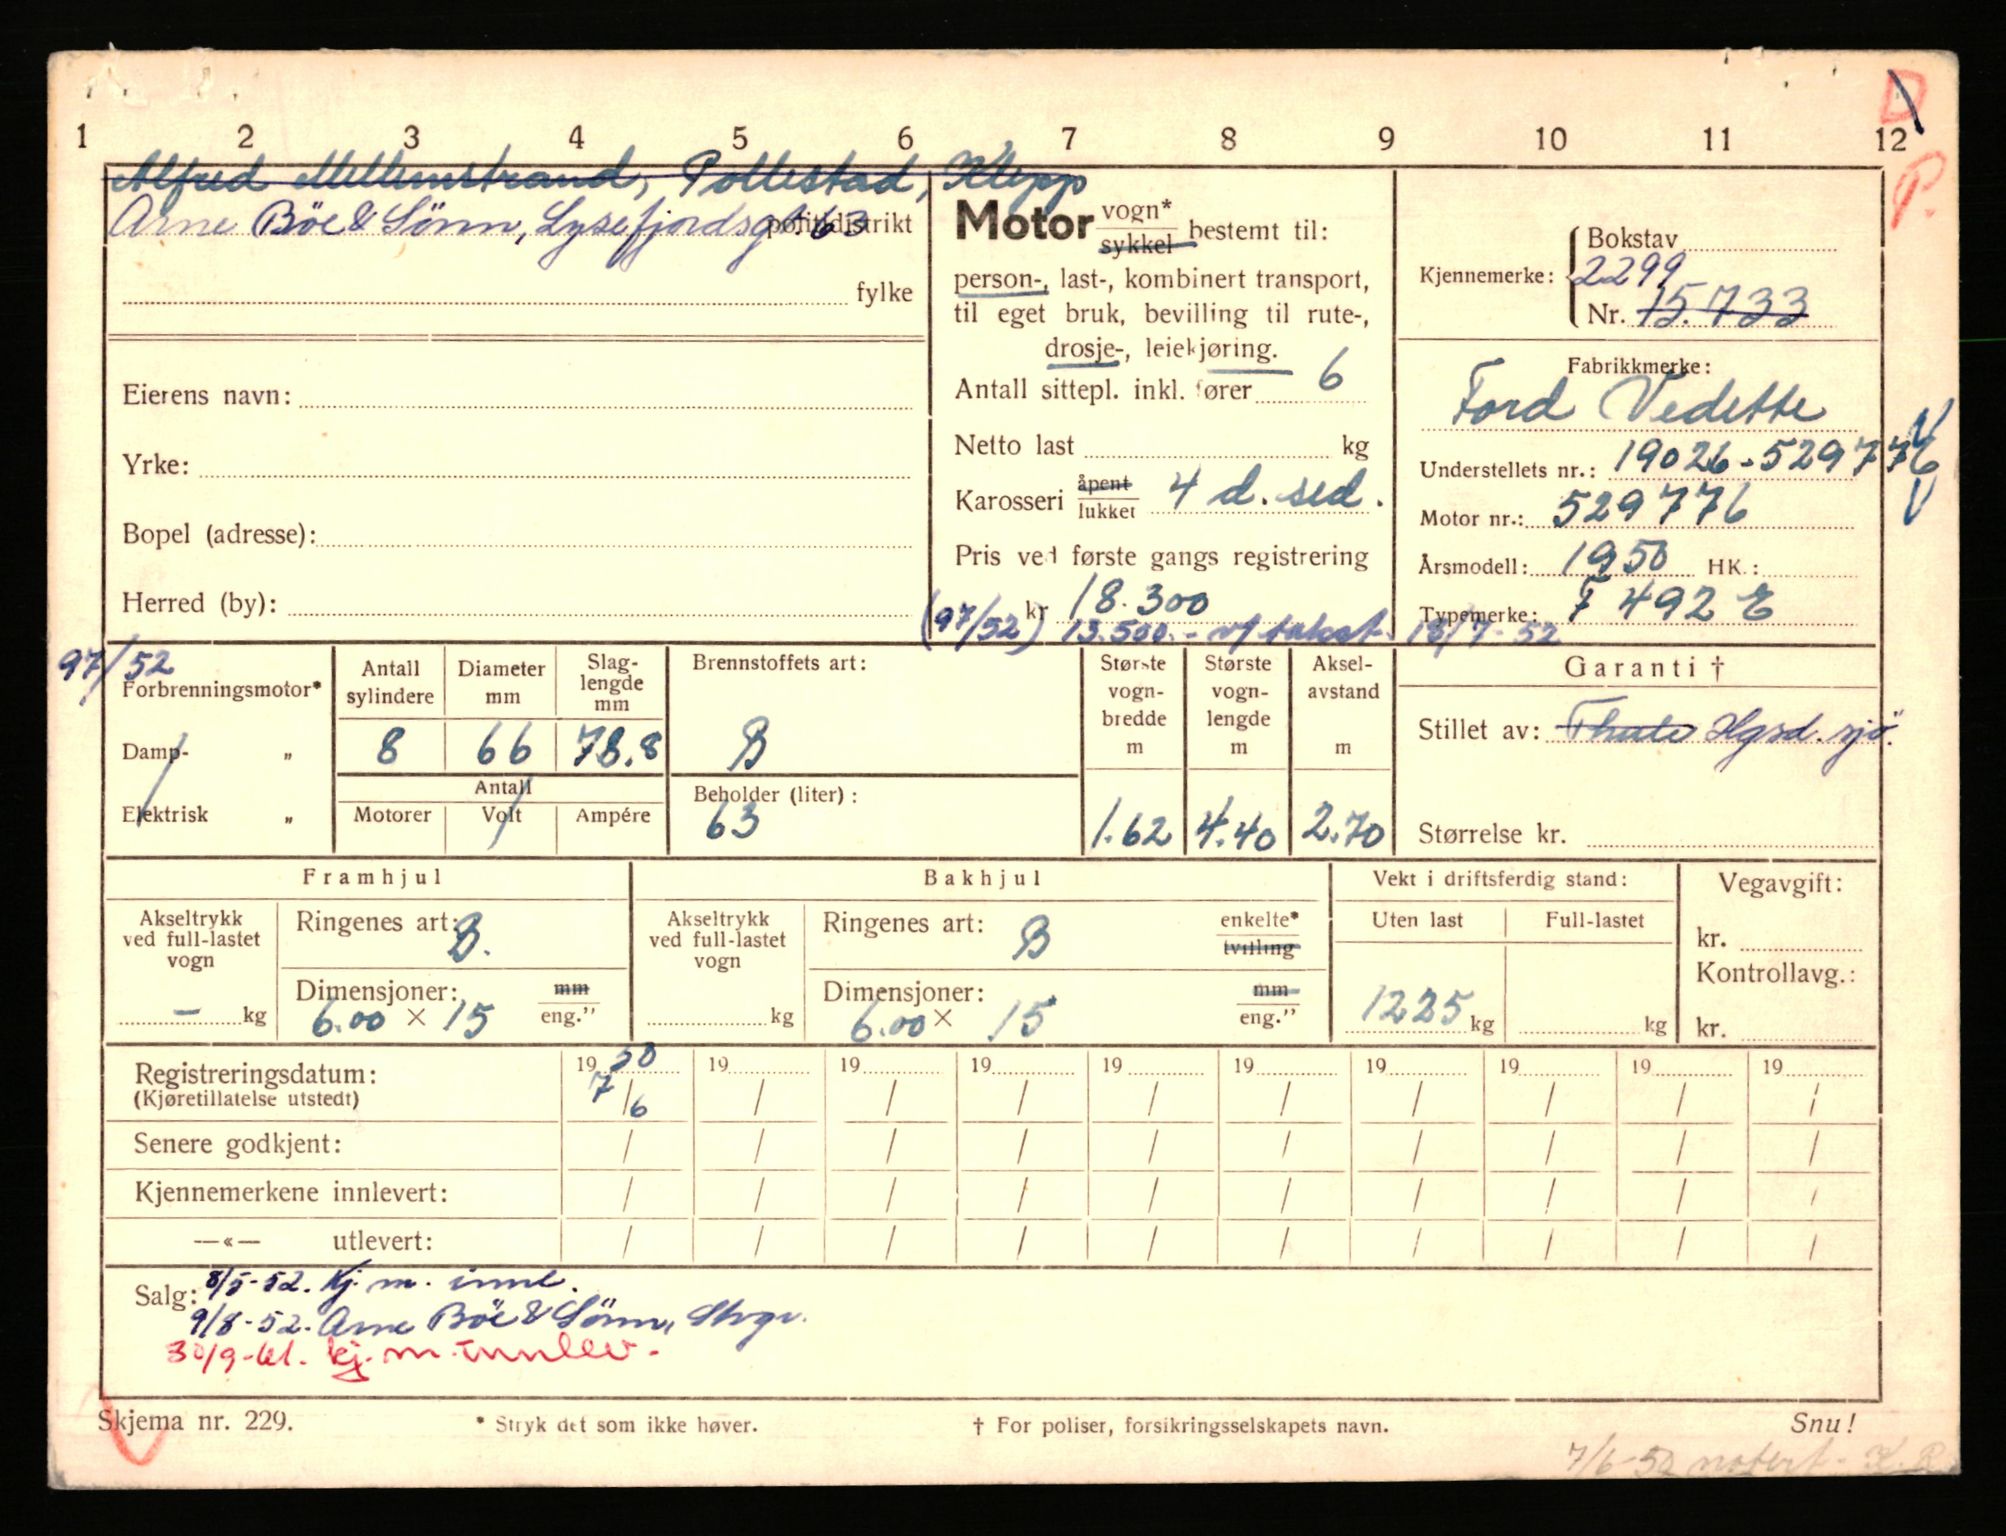 D
P.
1 2 3 4 5 6 7 8 9 10 11 12
Alfred Mellemstrand, Pollestad, Klepp
Arne Böe & Sönn, Lysefjordsgt. 63
politidistrikt
fylke
Eierens navn:
Yrke:
Bopel (adresse):
Herred (by):
Motor vogn* sykkel bestemt til:
person-, last-, kombinert transport,
til eget bruk, bevilling til rute-,
drosje-, leiekjøring.
Antall sittepl. inkl. fører 6
Netto last kg
Karosseri åpent lukket 4 d. sed.
Pris ved første gangs registrering
kr 18.300
(97/52) 13.500.- v/ takst. 18/7-52
Kjennemerke: Bokstav
2299
Nr. 15.733
Fabrikkmerke:
Ford Vedette
Understellets nr.: 19026-529776
Motor nr.: 529776
Årsmodell: 1950 HK.:
Typemerke: F 492 E
97/52
Forbrenningsmotor*
Damp- „
Elektrisk „
Antall sylindere
Diameter mm
Slag-lengde mm
8 66 78.8
Antall
Motorer Volt Ampére
Brennstoffets art:
B
Beholder (liter):
63
Største vogn-bredde m
1.62
Største vogn-lengde m
4.40
Aksel-avstand m
2.70
Garanti †
Stillet av: Thule Hgsd. sjö.
Størrelse kr.
Framhjul
Akseltrykk ved full-lastet vogn
— kg
Ringenes art: B.
Dimensjoner: mm
6.00 × 15 eng.”
Bakhjul
Akseltrykk ved full-lastet vogn
kg
Ringenes art: B enkelte* tvilling
Dimensjoner: mm
6.00 × 15 eng.”
Vekt i driftsferdig stand:
Uten last Full-lastet
1225 kg kg
Vegavgift:
kr.
Kontrollavg.:
kr.
Registreringsdatum: 1950 19 19 19 19 19 19 19 19 19
(Kjøretillatelse utstedt) 7/6 / / / / / / / / /
Senere godkjent: / / / / / / / / / /
Kjennemerkene innlevert: / / / / / / / / / /
—«— utlevert: / / / / / / / / / /
Salg: 8/5-52. Kj. m. innl.
9/8-52. Arne Böe & Sönn, Stvgr.
30/9-61. kj. m. innlev.
Skjema nr. 229.
* Stryk det som ikke høver.
† For poliser, forsikringsselskapets navn.
Snu!
7/6-52 notert. K. R.